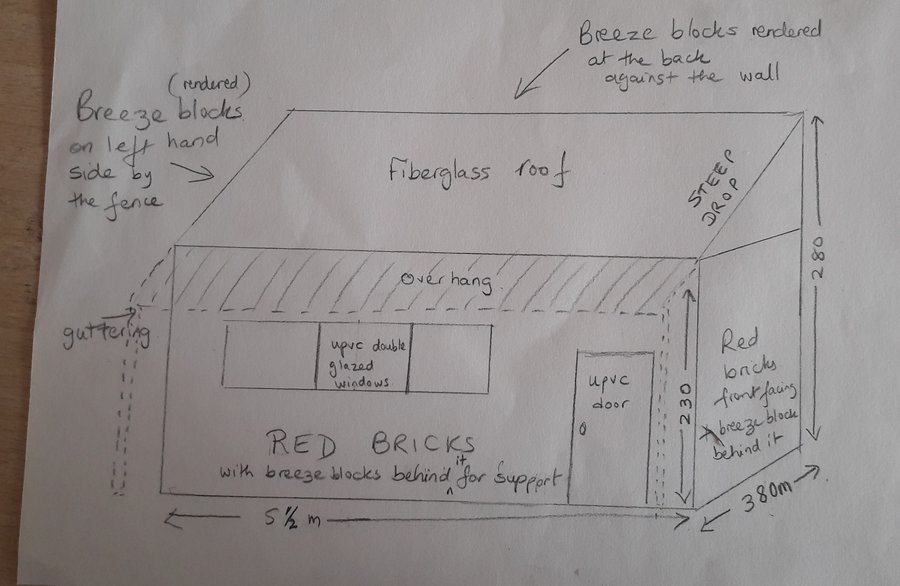 Breeze blocks rendered
at the back
against the wall
(rendered)
Breeze blocks
on left hand
side by
the fence
Fiberglass roof
STEEP
DROP
overhang
guttering
upvc double
glazed
windows
upvc
door
280
230
Red
bricks
front facing
breeze block
behind it
RED BRICKS
with breeze blocks behind it for support
5 ½ m
380m